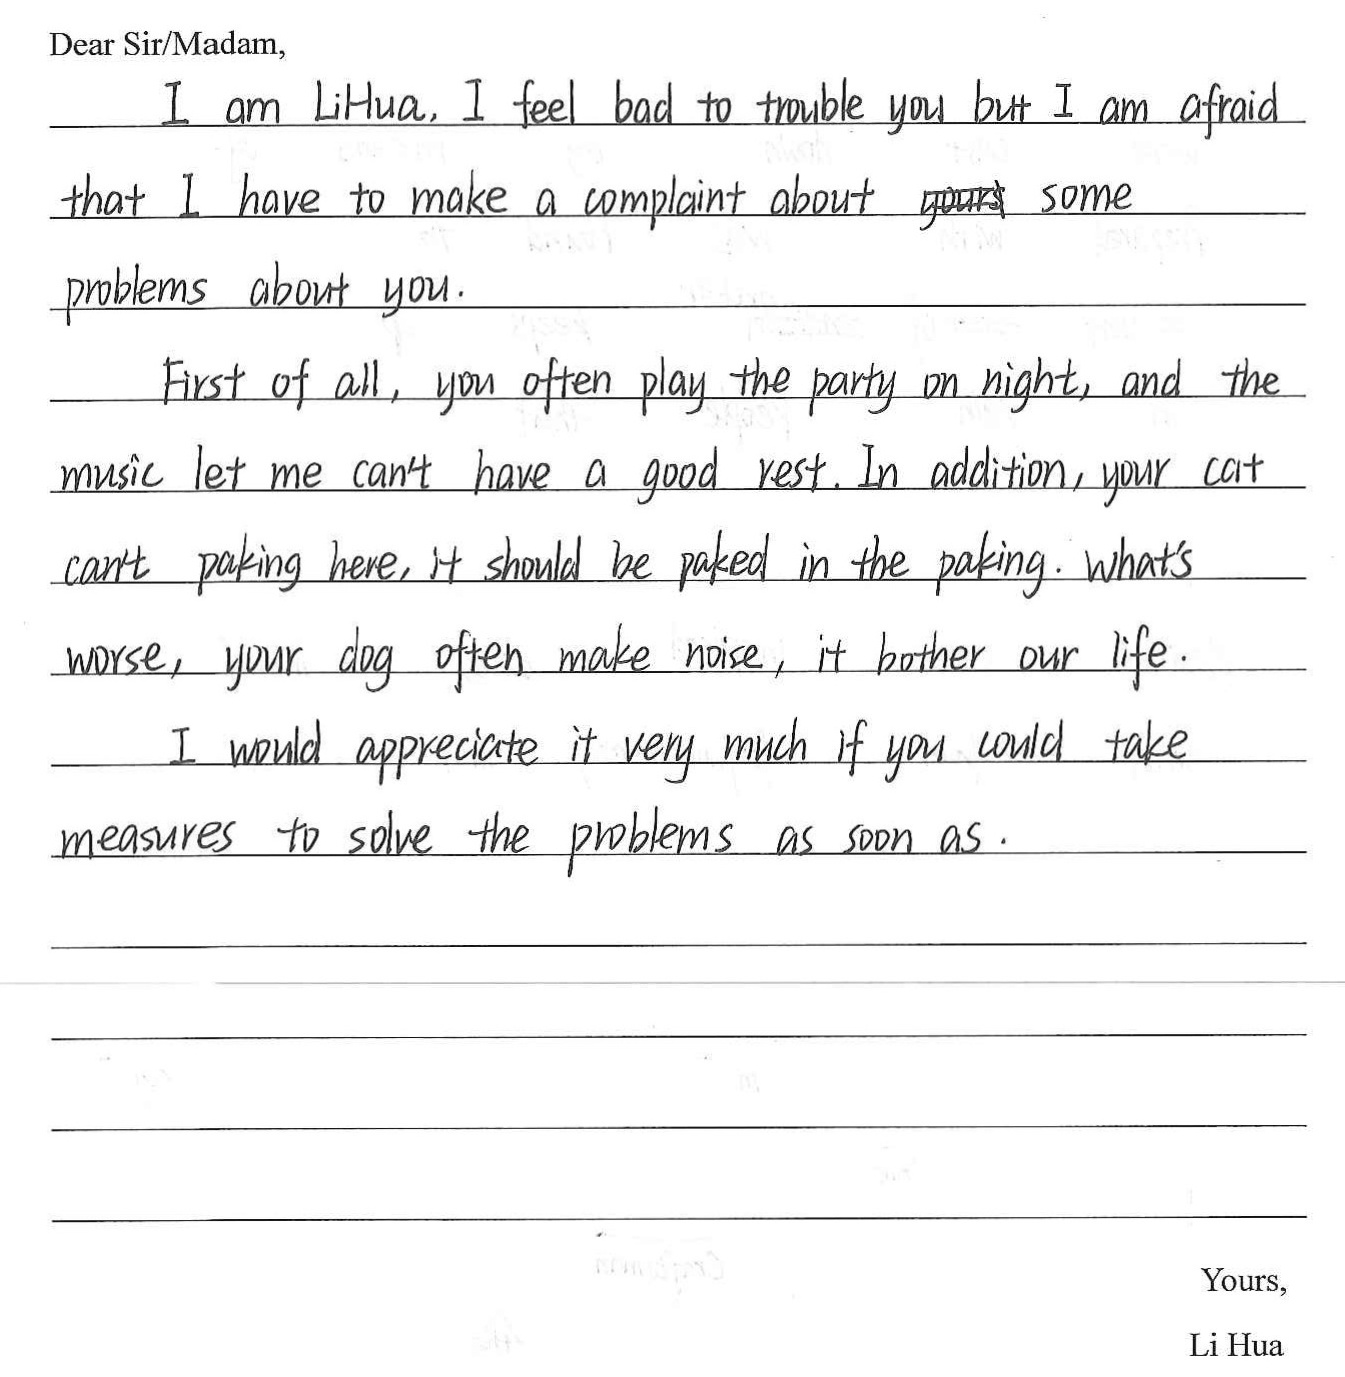 Dear Sir/Madam,
I am LiHua, I feel bad to trouble you but I am afraid
that I have to make a complaint about some
problems about you.
First of all, you often play the party on night, and the
music let me can't have a good rest. In addition, your cat
can't paking here, it should be paked in the paking. What's
worse, your dog often make noise, it bother our life.
I would appreciate it very much if you could take
measures to solve the problems as soon as.
Yours,
Li Hua